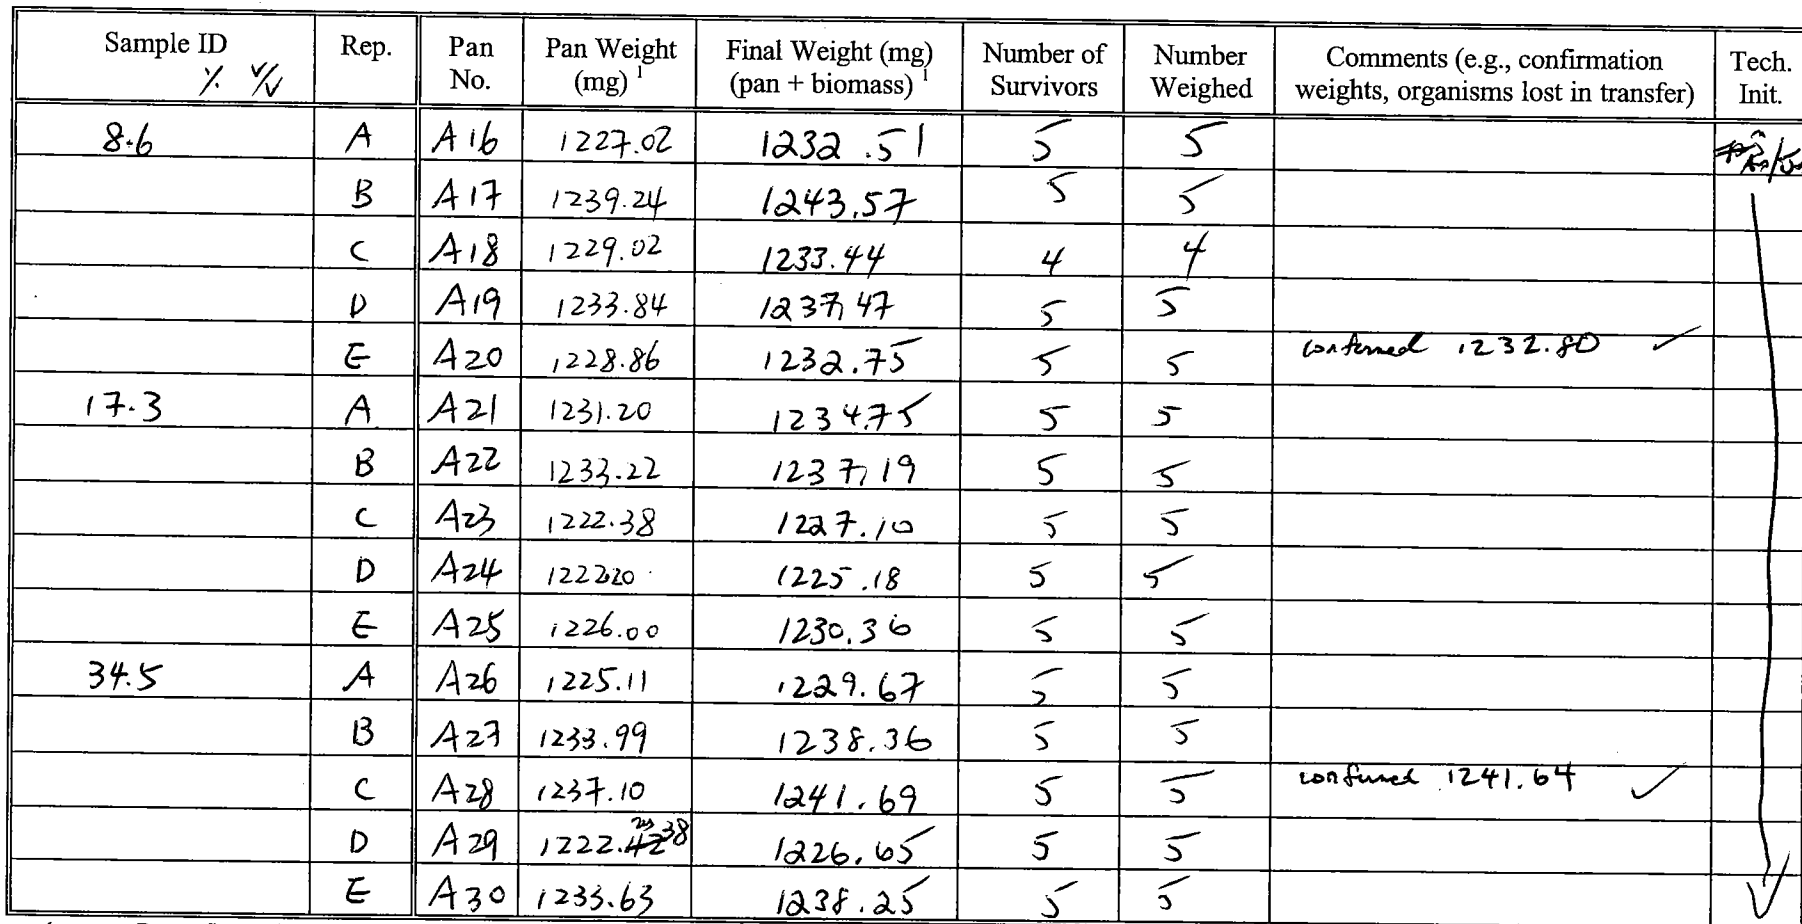 Sample ID % v/v Rep. Pan No. Pan Weight (mg) 1 Final Weight (mg) (pan + biomass) 1 Number of Survivors Number Weighed Comments (e.g., confirmation weights, organisms lost in transfer) Tech. Init.
8.6 A A16 1227.02 1232.51 5 5
B A17 1239.24 1243.57 5 5
C A18 1229.02 1233.44 4 4
D A19 1233.84 1237.47 5 5
E A20 1228.86 1232.75 5 5 confirmed 1232.80 ✓
17.3 A A21 1231.20 1234.75 5 5
B A22 1233.22 1237.19 5 5
C A23 1222.38 1227.10 5 5
D A24 1222.20 1225.18 5 5
E A25 1226.00 1230.36 5 5
34.5 A A26 1225.11 1229.67 5 5
B A27 1233.99 1238.36 5 5
C A28 1237.10 1241.69 5 5 confirmed 1241.64 ✓
D A29 1222.38 1226.65 5 5
E A30 1233.63 1238.25 5 5